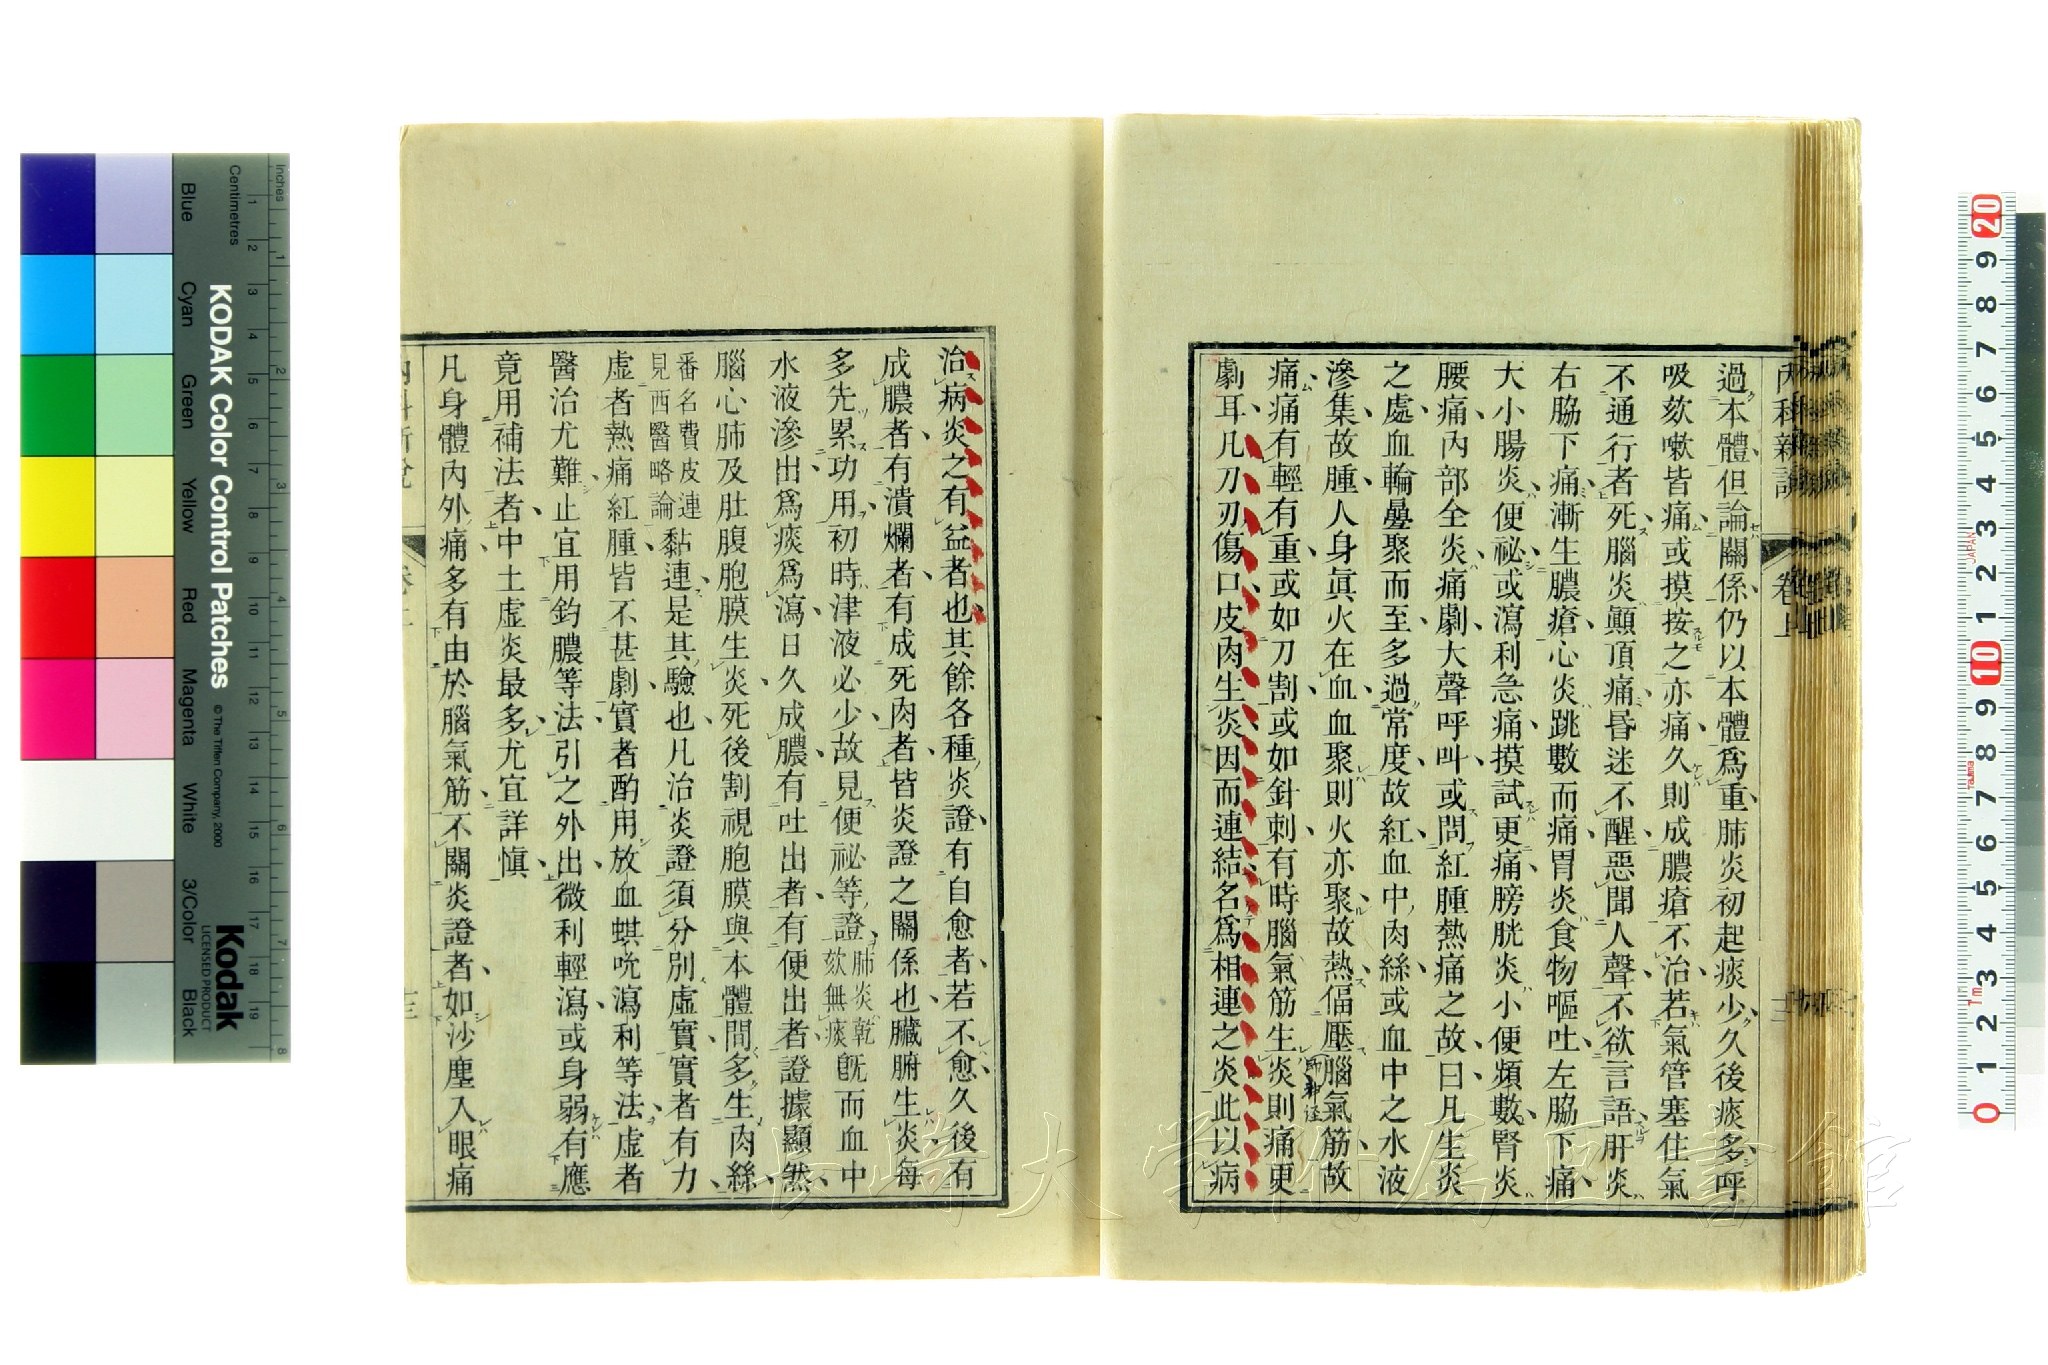 內科新說 卷上 十二
過本體但論關係仍以本體爲重肺炎初起痰少久後痰多呼
吸欬嗽皆痛或摸按之亦痛久則成膿瘡不治若氣管塞住氣
不通行者死腦炎顚頂痛昏迷不醒惡聞人聲不欲言語肝炎
右脇下痛漸生膿瘡心炎跳數而痛胃炎食物嘔吐左脇下痛
大小腸炎便祕或瀉利急痛摸試更痛膀胱炎小便頻數腎炎
腰痛內部全炎痛劇大聲呼叫或問紅腫熱痛之故曰凡生炎
之處血輪曡聚而至多過常度故紅血中肉絲或血中之水液
滲集故腫人身眞火在血血聚則火亦聚故熱偪壓腦氣筋故
卽神径
痛痛有輕有重或如刀割或如針刺有時腦氣筋生炎則痛更
劇耳凡刀刃傷口皮肉生炎因而連結名爲相連之炎此以病
治病炎之有益者也其餘各種炎證有自愈者若不愈久後有
成膿者有潰爛者有成死肉者皆炎證之關係也臟腑生炎每
多先累功用初時津液必少故見便祕等證肺炎乾欬無痰旣而血中
水液滲出爲痰爲瀉日久成膿有吐出者有便出者證據顯然
腦心肺及肚腹胞膜生炎死後割視胞膜與本體間多生肉絲
番名費皮連見西醫略論黏連是其驗也凡治炎證須分別虛實實者有力
虛者熱痛紅腫皆不甚劇實者酌用放血蜞吮瀉利等法虛者
醫治尤難止宜用鈞膿等法引之外出微利輕瀉或身弱有應
竟用補法者中土虛炎最多尤宜詳愼
凡身體內外痛多有由於腦氣筋不關炎證者如沙塵入眼痛
內科新說 卷上 十三
長崎大学附属図書館
KODAK Color Control Patches
© The Tiffen Company, 2000
Kodak
LICENSED PRODUCT
Inches
Centimetres
Blue
Cyan
Green
Yellow
Red
Magenta
White
3/Color
Black
1 2 3 4 5 6 7 8 9 10 11 12 13 14 15 16 17 18 19
1 2 3 4 5 6 7 8
20 9 8 7 6 5 4 3 2 1 10 9 8 7 6 5 4 3 2 1 0
JAPAN
Tajima
1m